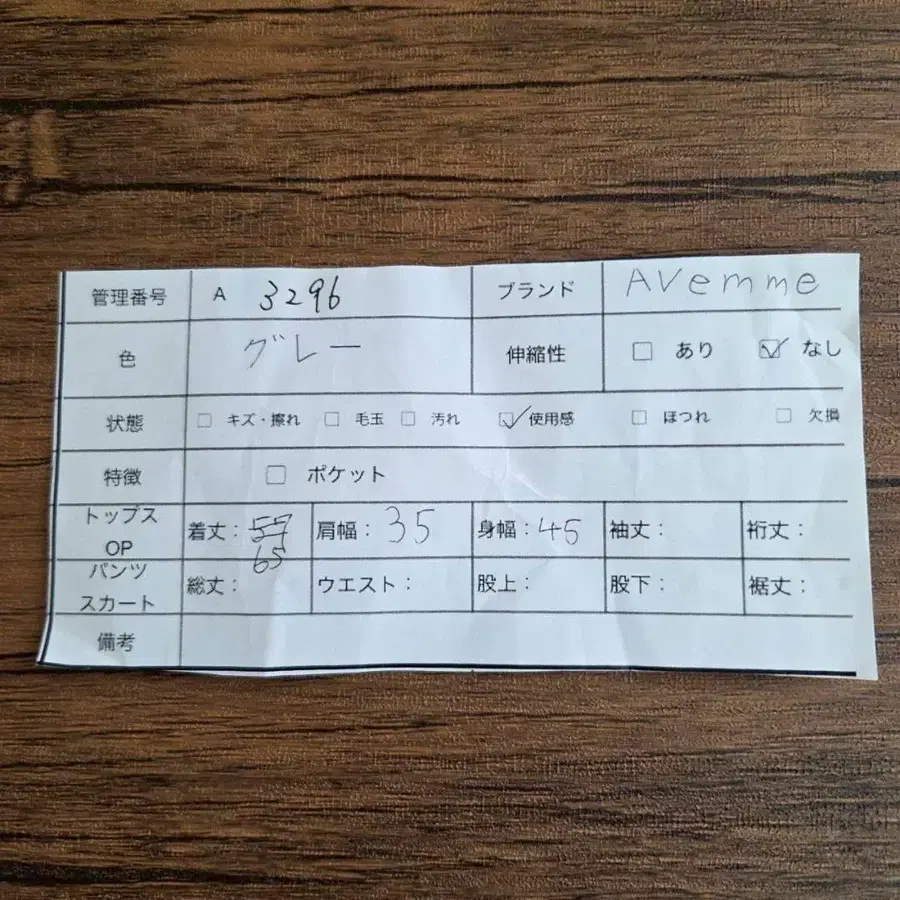 管理番号 A 3296 ブランド AVemme
色 グレー 伸縮性 □ あり ☑ なし
状態 □ キズ・擦れ □ 毛玉 □ 汚れ ☑ 使用感 □ ほつれ □ 欠損
特徴 □ ポケット
トップス OP 着丈: 57 65 肩幅: 35 身幅: 45 袖丈: 裄丈:
パンツ スカート 総丈: ウエスト: 股上: 股下: 裾丈:
備考